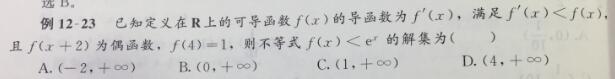 选 B.
例 12-23 已知定义在 R 上的可导函数 f(x) 的导函数为 f′(x), 满足 f′(x)<f(x),
且 f(x+2) 为偶函数, f(4)=1, 则不等式 f(x)<eˣ 的解集为( )
A. (-2,+∞) B. (0,+∞) C. (1,+∞) D. (4,+∞)